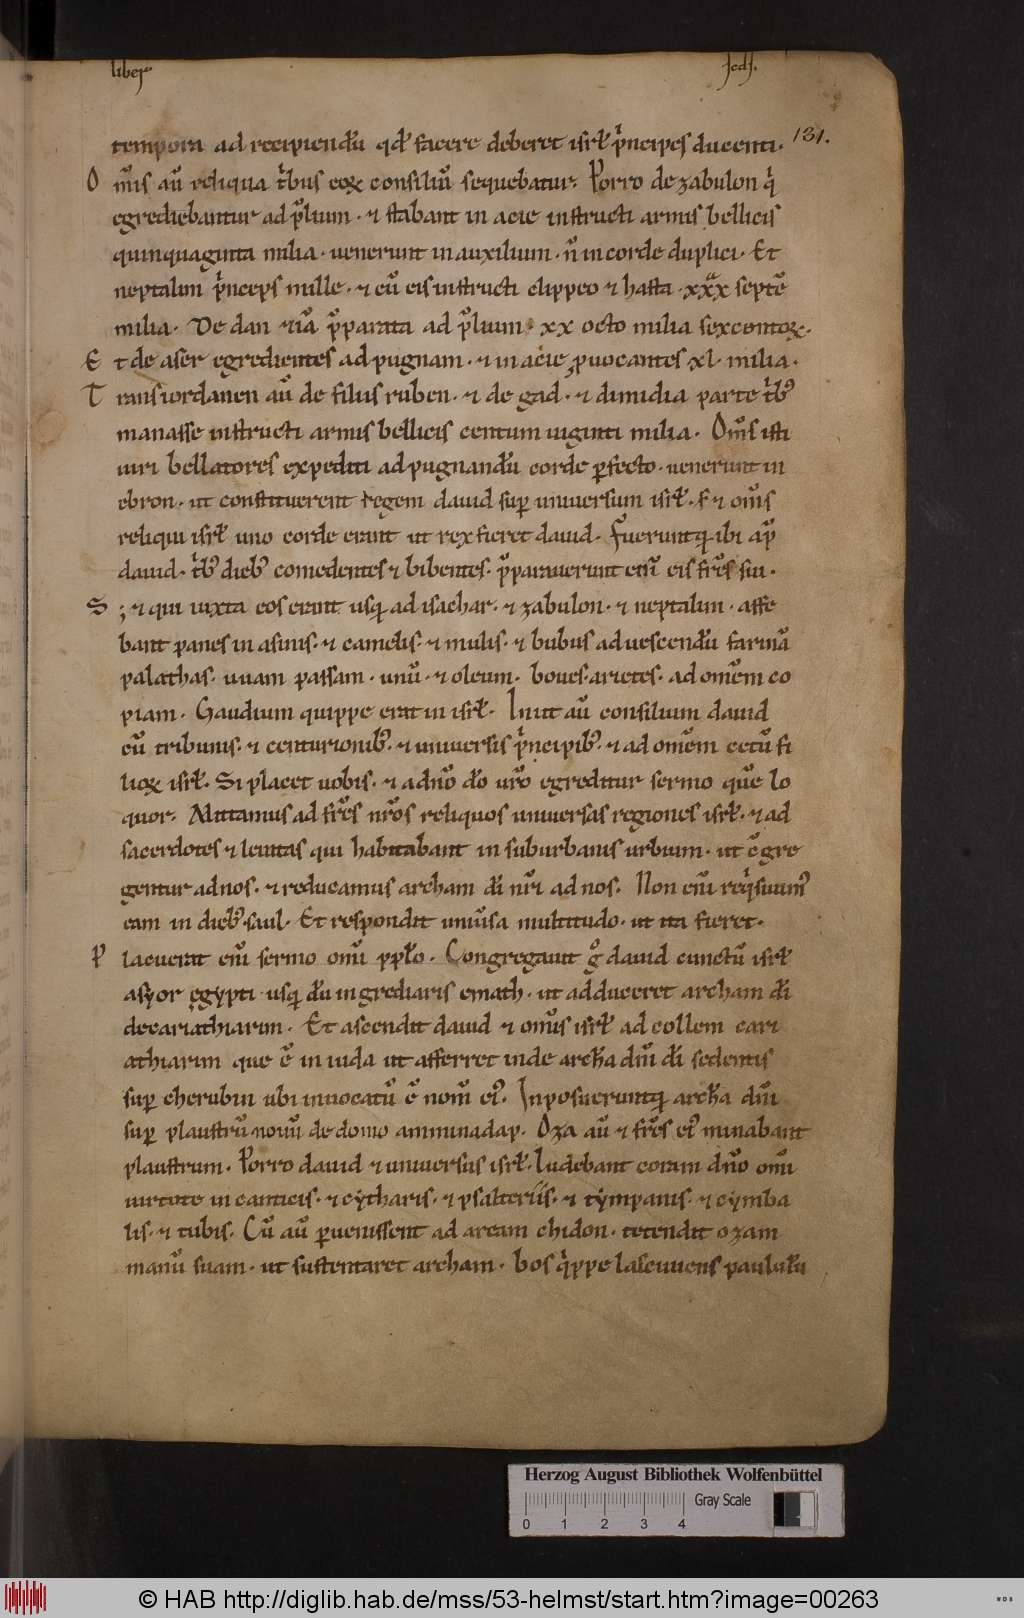 liber scđs.
131.
tempora ad recipiendū qđ facere deberet isrł pͥncipes ducenti.
O m̄is aū reliqua tͥbus eoꝝ consiliū sequebatur. Porro de zabulon qͥ
egrediebantur ad p̄lium. ⁊ stabant in acie instructi armis bellicis
quinquaginta milia. uenerunt in auxilium. ñ in corde duplici. Et
neptalim pͥnceps mille. ⁊ cū eis instructi clippeo ⁊ hasta. xxx septē
milia. De dan &iā p̄parata ad p̄lium. xx octo milia sexcentoꝝ.
E t de aser egredientes ad pugnam. ⁊ in acie ꝓuocantes xl. milia.
T ransiordanen aū de filiis ruben. ⁊ de gad. ⁊ dimidia parte tͥbꝰ
manasse instructi armis bellicis centum uiginti milia. Om̄s isti
uiri bellatores expediti ad pugnandū corde ꝑfecto. uenerunt in
ebron. ut constituerent regem dauid suꝑ uniuersum isrł. S; ⁊ om̄is
reliqui isrł uno corde erant ut rex fieret dauid. Fueruntꝗ ibi ap̄
dauid. tͥbꝰ diebꝰ comedentes ⁊ bibentes. p̄parauerunt eni᷒ eis fr̄es sui.
S ; ⁊ qui iuxta eos erant usꝗ ad isachar. ⁊ zabulon. ⁊ neptalim. affe
bant panes in asinis. ⁊ camelis. ⁊ mulis. ⁊ bubus ad uescendū farinā
palathas. uuam passam. uinū. ⁊ oleum. boues. arietes. ad omēm co
piam. Gaudium quippe erat in isrł. Iniit aū consilium dauid
cū tribunis. ⁊ centurionibꝰ. ⁊ uniuersis pͥncipibꝰ. ⁊ ad omēm cetū fi
lioꝝ isrł. Si placet uobis. ⁊ a dnō dō nr̄o egreditur sermo quē lo
quor. Mittamus ad fr̄es nr̄os reliquos uniuersas regiones isrł. ⁊ ad
sacerdotes ⁊ leuitas qui habitabant in suburbanis urbium. ut ↄgre
gentur ad nos. ⁊ reducamus archam dī nr̄i ad nos. Non enī reqͥsiuimꝰ
eam in diebꝰ saul. Et respondit uniūsa multitudo. ut ita fieret.
P lacuerat enī sermo om̄i ppło. Congregauit gͦ dauid cunctū isrł
a syor egypti usꝗ dū ingrediaris emath. ut adduceret archam dī
de cariathiarim. Et ascendit dauid ⁊ om̄is isrł ad collem cari
athiarim que ē in iuda ut afferret inde archā dn̄i dī sedentis
suꝑ cherubin ubi inuocatū ē nom̄ eiꝰ. Inposueruntꝗ archā dn̄i
suꝑ plaustrū nouū de domo amminadap. Oza aū ⁊ fr̄es eiꝰ minabant
plaustrum. Porro dauid ⁊ uniuersus isrł. ludebant coram dn̄o om̄i
uirtute in canticis. ⁊ cytharis. ⁊ psalteriis. ⁊ tympanis. ⁊ cymba
lis. ⁊ tubis. Cū aū ꝑuenissent ad aream chidon. tetendit ozam
manū suam. ut sustentaret archam. bos qͥppe lasciuiens paululū
Herzog August Bibliothek Wolfenbüttel
Gray Scale
0 1 2 3 4
© HAB http://diglib.hab.de/mss/53-helmst/start.htm?image=00263